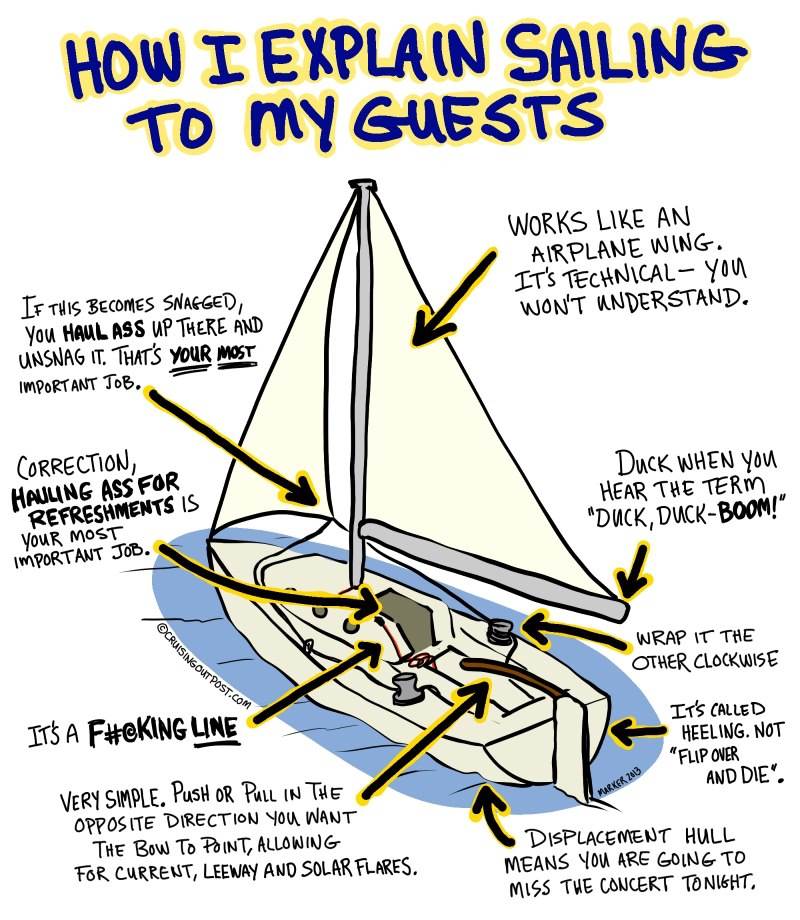 HOW I EXPLAIN SAILING
TO MY GUESTS
WORKS LIKE AN
AIRPLANE WING.
IT'S TECHNICAL— YOU
WON'T UNDERSTAND.
IF THIS BECOMES SNAGGED,
YOU HAUL ASS UP THERE AND
UNSNAG IT. THAT'S YOUR MOST
IMPORTANT JOB.
CORRECTION,
HAULING ASS FOR
REFRESHMENTS IS
YOUR MOST
IMPORTANT JOB.
DUCK WHEN YOU
HEAR THE TERM
"DUCK, DUCK-BOOM!"
WRAP IT THE
OTHER CLOCKWISE
©CRUISINGOUTPOST.COM
IT'S A F#@KING LINE
IT'S CALLED
HEELING. NOT
"FLIP OVER
AND DIE".
MARKER 2013
VERY SIMPLE. PUSH OR PULL IN THE
OPPOSITE DIRECTION YOU WANT
THE BOW TO POINT, ALLOWING
FOR CURRENT, LEEWAY AND SOLAR FLARES.
DISPLACEMENT HULL
MEANS YOU ARE GOING TO
MISS THE CONCERT TONIGHT.